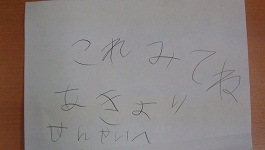 これみてね
あきより
せんせいへ